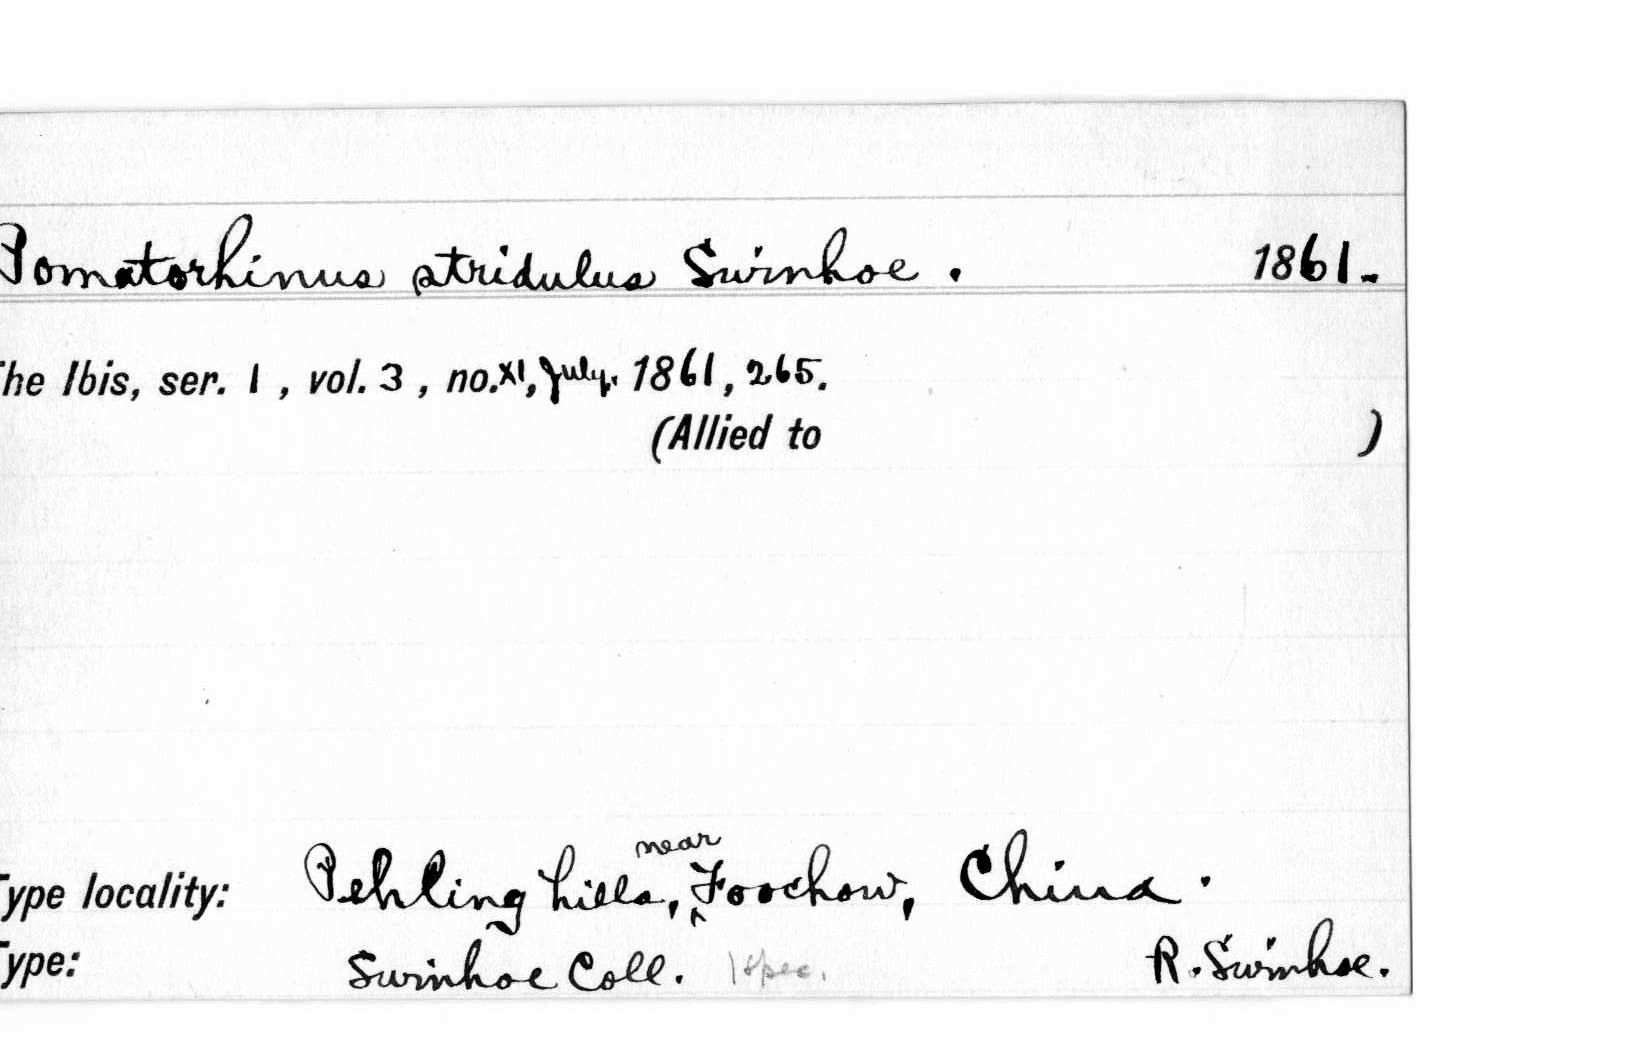 Pomatorhinus stridulus Swinhoe. 1861.
The Ibis, ser. 1, vol. 3, no. XI, July, 1861, 265.
(Allied to )
Type locality: Pehling hills, near Foochow, China.
Type: Swinhoe Coll. 1 spec. R. Swinhoe.